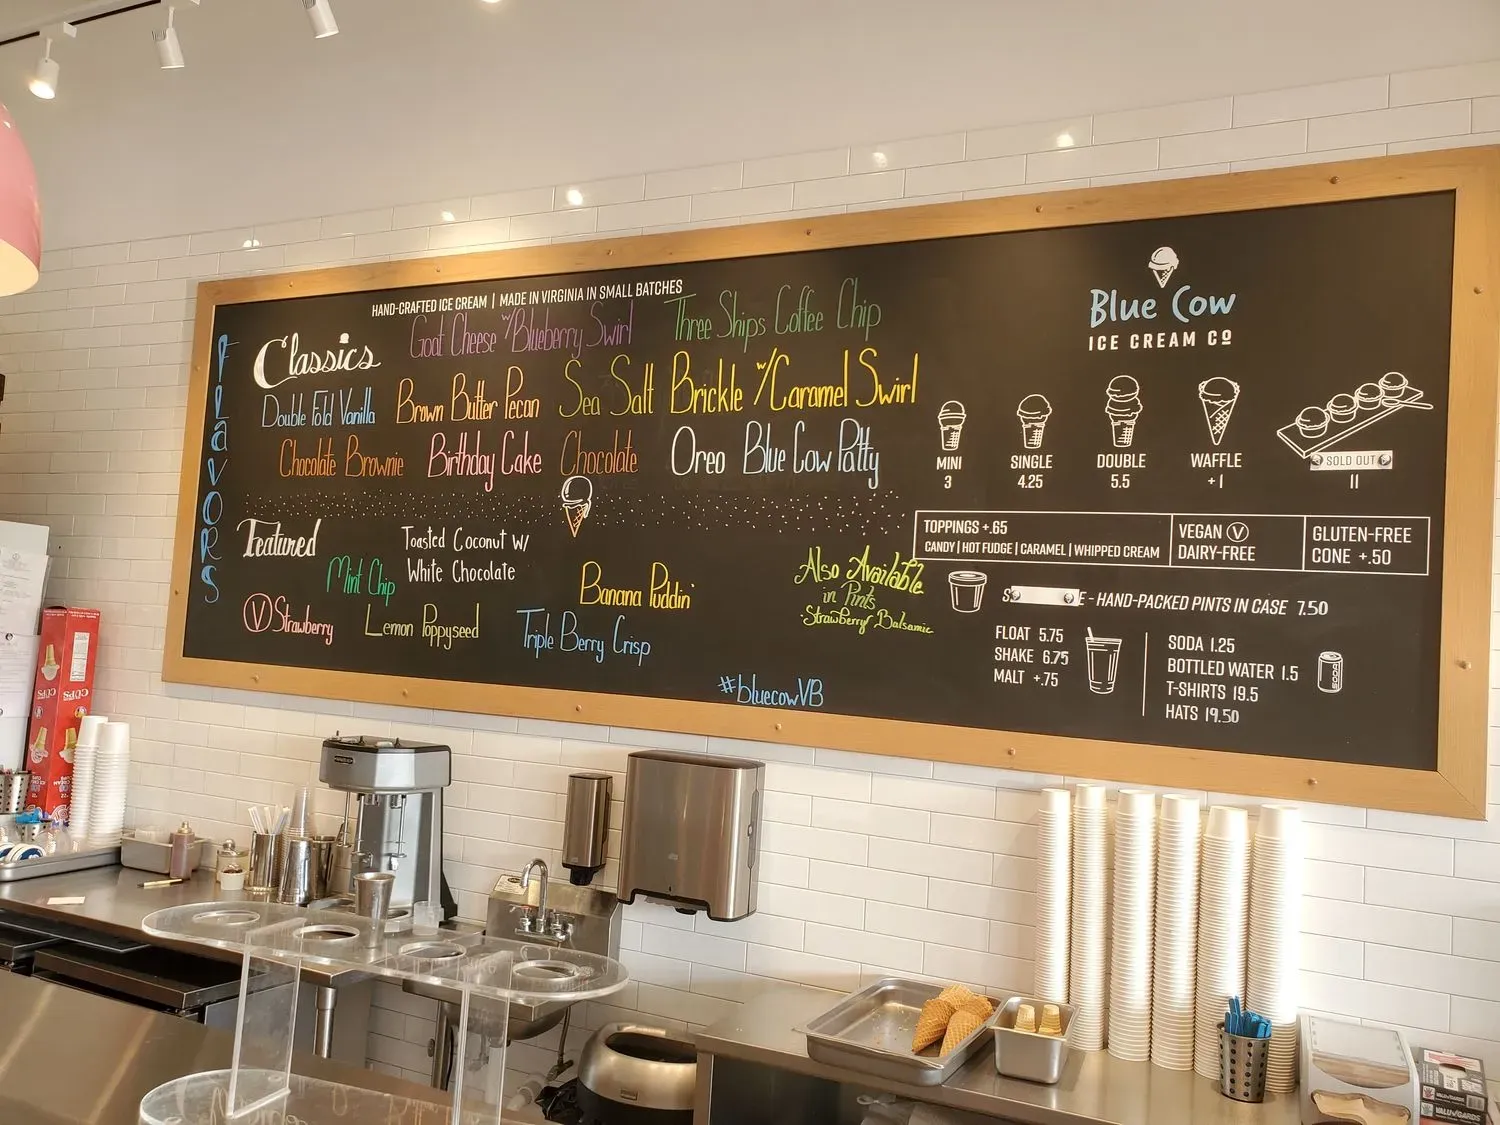 HAND-CRAFTED ICE CREAM | MADE IN VIRGINIA IN SMALL BATCHES
FLaVORS
Classics
Goat Cheese w/Blueberry Swirl
Three Ships Coffee Chip
Double Fold Vanilla
Brown Butter Pecan
Sea Salt Brickle w/Caramel Swirl
Chocolate Brownie
Birthday Cake
Chocolate
Oreo
Blue Cow Patty
Featured
Toasted Coconut W/
White Chocolate
Mint Chip
Banana Puddin'
V Strawberry
Lemon Poppyseed
Triple Berry Crisp
Also Available
in Pints
Strawberry Balsamic
#bluecowVB
Blue Cow
ICE CREAM CO
MINI
3
SINGLE
4.25
DOUBLE
5.5
WAFFLE
+1
SOLD OUT
11
TOPPINGS +.65
CANDY | HOT FUDGE | CARAMEL | WHIPPED CREAM
VEGAN V
DAIRY-FREE
GLUTEN-FREE
CONE +.50
E - HAND-PACKED PINTS IN CASE 7.50
FLOAT 5.75
SHAKE 6.75
MALT +.75
SODA 1.25
BOTTLED WATER 1.5
T-SHIRTS 19.5
HATS 19.50
SODA
CUPS
VALUGARDS
VALUGARDS